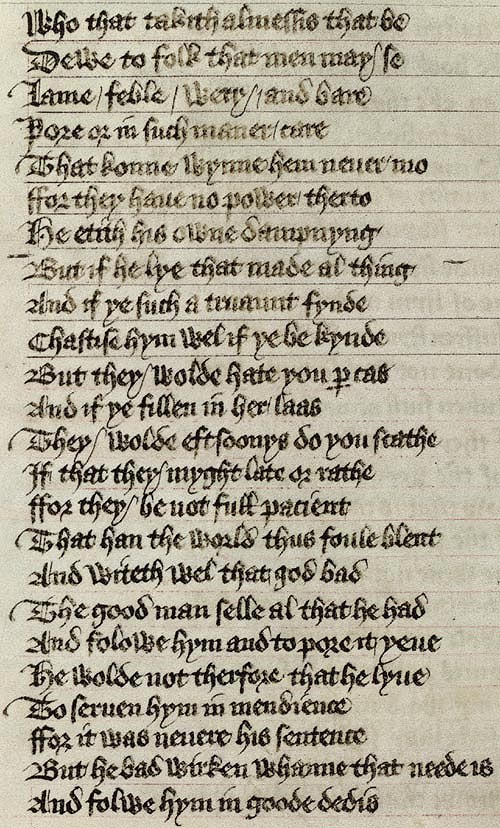 Who that takith almessis that be
Dewe to folk that men may se
Lame / feble / wery / and bare
Pore or in such maner care
That konne wynne hem never mo
ffor they haue no power therto
He etith his owne dampnyng
But if he lye that made al thing
And if ye such a truaunt fynde
Chastise hym wel if ye be kynde
But they / wolde hate you ꝑcas
And if ye fillen in her laas
They / wolde eftsoonys do you scathe
If that they / myght late or rathe
ffor they / be not full pacient
That han the world thus foule blent
And witeth wel that god bad
The good man selle al that he had
And folowe hym and to pore it yeue
He wolde not therfore that he lyue
To seruen hym in mendience
ffor it was neuere his sentence
But he bad wirken whanne that neede is
And folwe hym in goode dedis